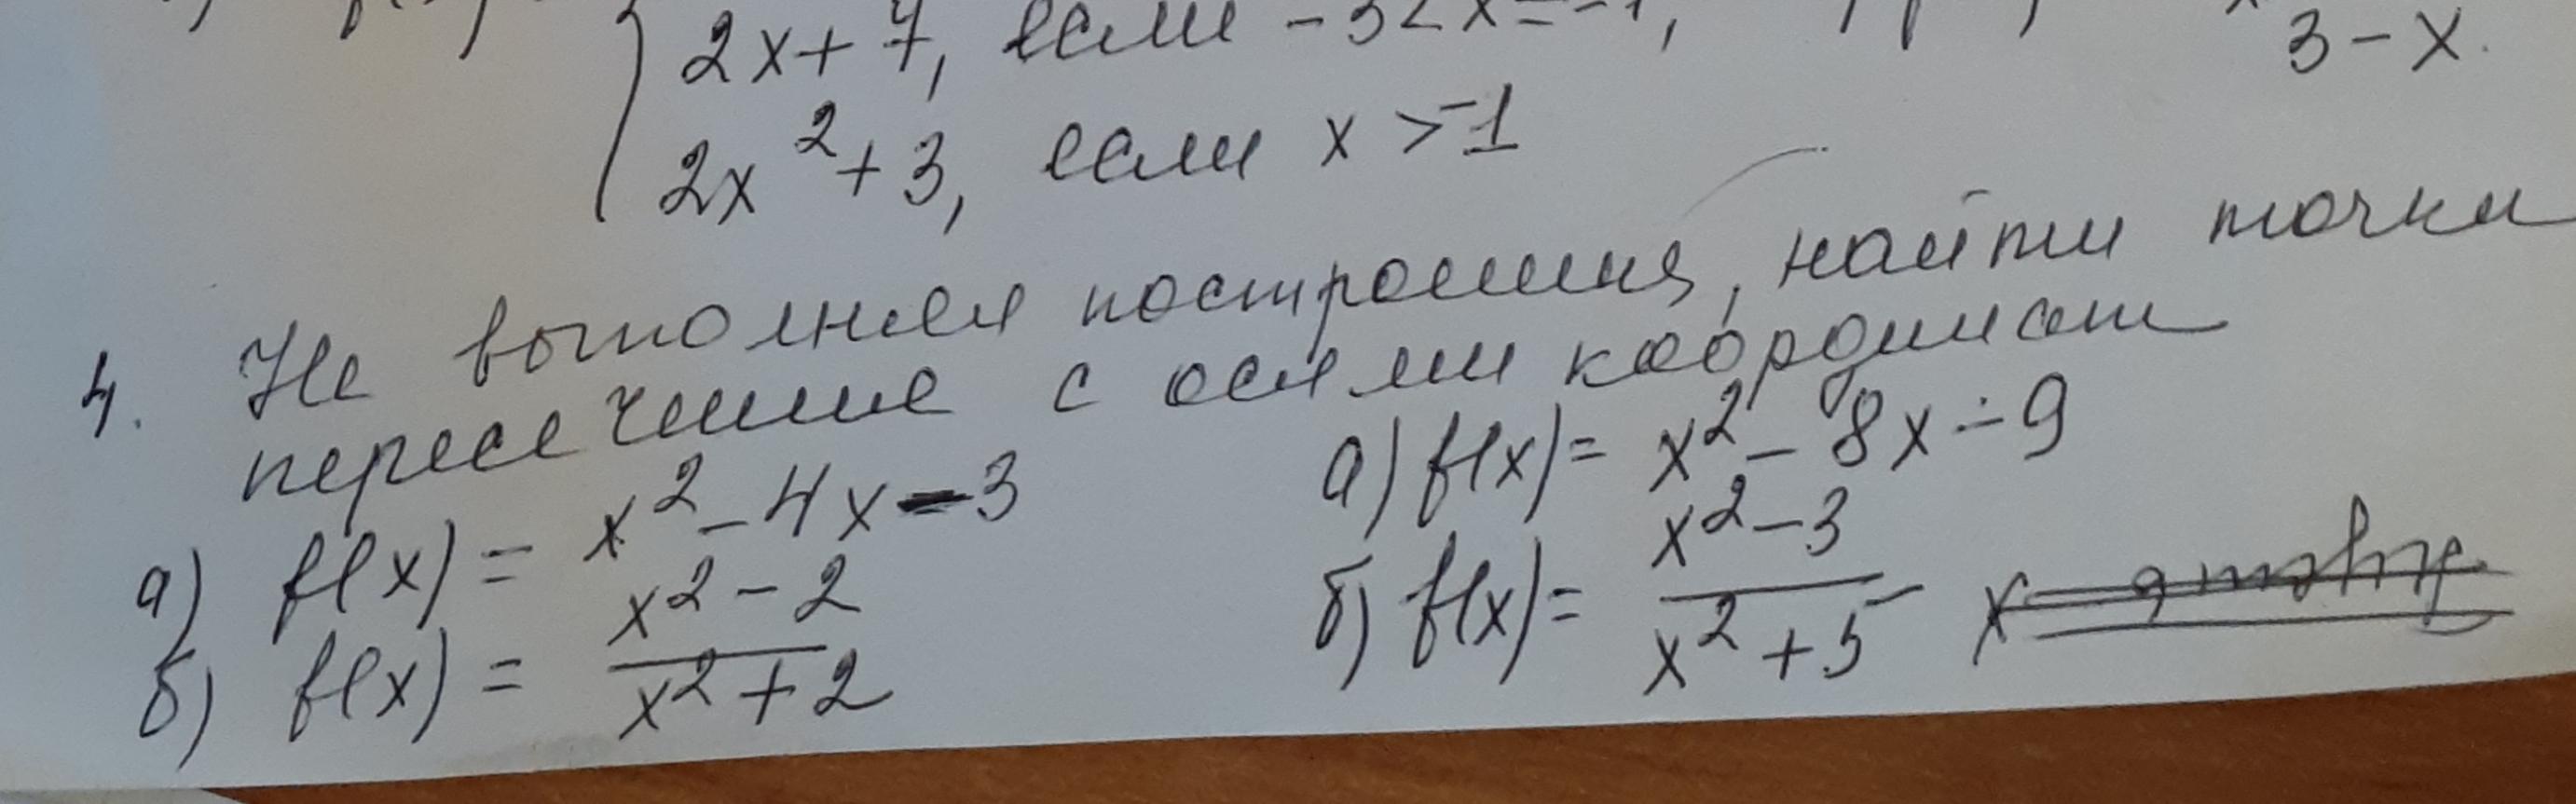 2x+7, если -3<x≤-1,
3-x.
2x²+3, если x>-1
4. Не выполняя построения, найти точки
пересечение с осями координат
а) f(x)= x²-4x-3
а) f(x)= x²-8x-9
б) f(x)= x²-2 / x²+2
б) f(x)= x²-3 / x²+5